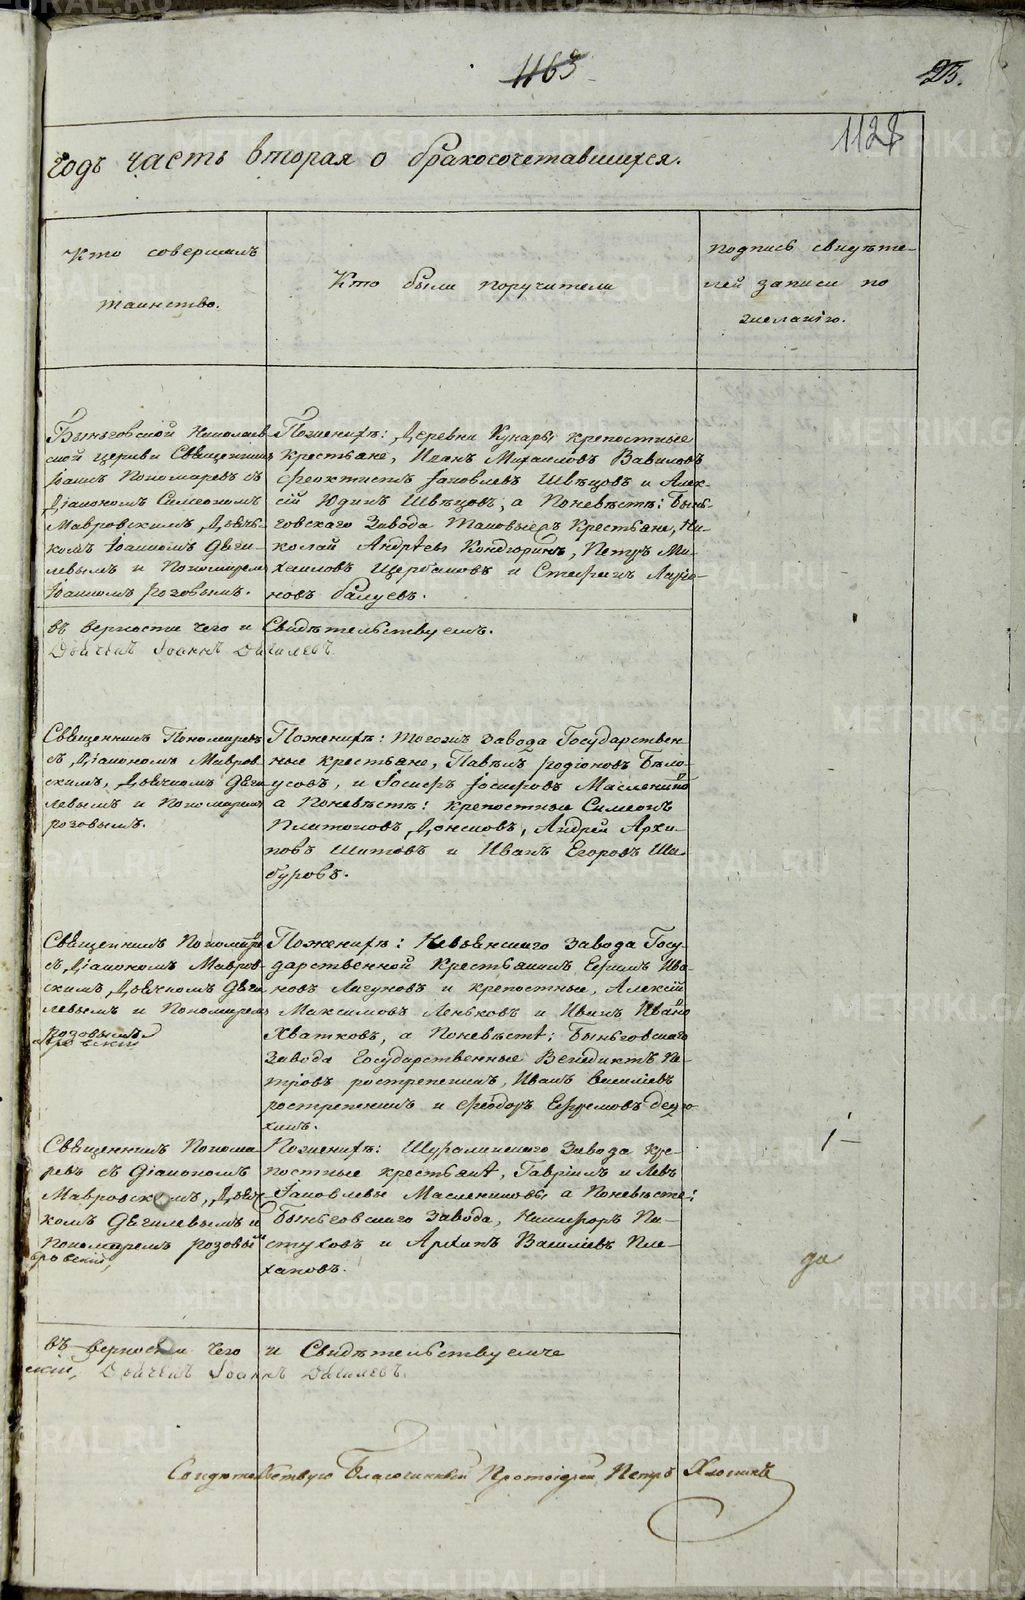 1163
23.
1128
годъ часть вторая о бракосочетавшихся.
Кто совершалъ
таинство.
Кто были поручители
подпись свидѣте-
лей записи по
желанію.
Быньговской Николаев
ской церкви Священникъ
Іоаннъ Пономаревъ съ
Діакономъ Симеономъ
Мавровскимъ, Дьяч-
комъ Іоанномъ Дяги-
левымъ и Пономаремъ
Іоанномъ розовымъ.
Поженихѣ: Деревни Кунары крепостные
крестьяне, Иванъ Михаиловъ Вавиловъ
Феоктистъ Іаковлевъ Швѣцовъ и Алек-
сій Юдинъ Швѣцовъ; а Поневѣстѣ: Бынь-
говскаго Завода таковыежъ Крестьяне, Ни-
колай Андрѣевъ Кондюринъ, Петръ Ми-
хаиловъ Щербаковъ и Стефанъ Ларіо-
новъ балуевъ.
въ верности чего и Свидѣтельствуемъ.
Дьячекъ Іоаннъ Дягилевъ
Священникъ Пономаревъ
съ Діакономъ Мавров-
скимъ, Дьячкомъ Дяги
левымъ и Пономаремъ
розовымъ.
Поженихѣ: тогожъ завода Государствен-
ные крестьяне, Павелъ родіоновъ Бѣло-
усовъ, и Іосифъ Іосифовъ Масленико
а Поневѣстѣ: крепостные Симеонъ
Платоновъ Донсковъ, Андрей Архи-
повъ Шитовъ и Иванъ Егоровъ Ша-
буровъ.
Священникъ Пономаре
съ Діакономъ Мавров-
скимъ, Дьячкомъ Дяги
левымъ и Пономаремъ
розовымъ
Поженихѣ: Невьянскаго завода Госу-
дарственной Крестьянинъ Ефимъ Ива-
новъ Лагуновъ и крепостные, Алексій
Максимовъ Леньковъ и Иванъ Ивано
Хватковъ, а Поневѣстѣ: Быньговскаго
Завода Государственные Венедиктъ Пе-
тровъ ростренинъ, Иванъ Василіевъ
и Феодоръ Ефремовъ
Священникъ Понома-
ревъ съ Діакономъ
Мавровскомъ, Дьяч
комъ Дягилевымъ и
Пономаремъ розовы
Поженихѣ: Шуралинскаго Завода кре-
постные крестьянѣ, Гавріилъ и Левъ
Іаковлевы Маслениковы а Поневѣсте:
Быньговскаго Завода, Никифоръ Па-
стуховъ и Архипъ Василіевъ Пле-
хановъ.
да
въ верности чего и Свидѣтельствуемъ
Дьячекъ Іоаннъ Дягилевъ.
Свидетельствую Благочинный Протоіерей Петръ Хлопинъ